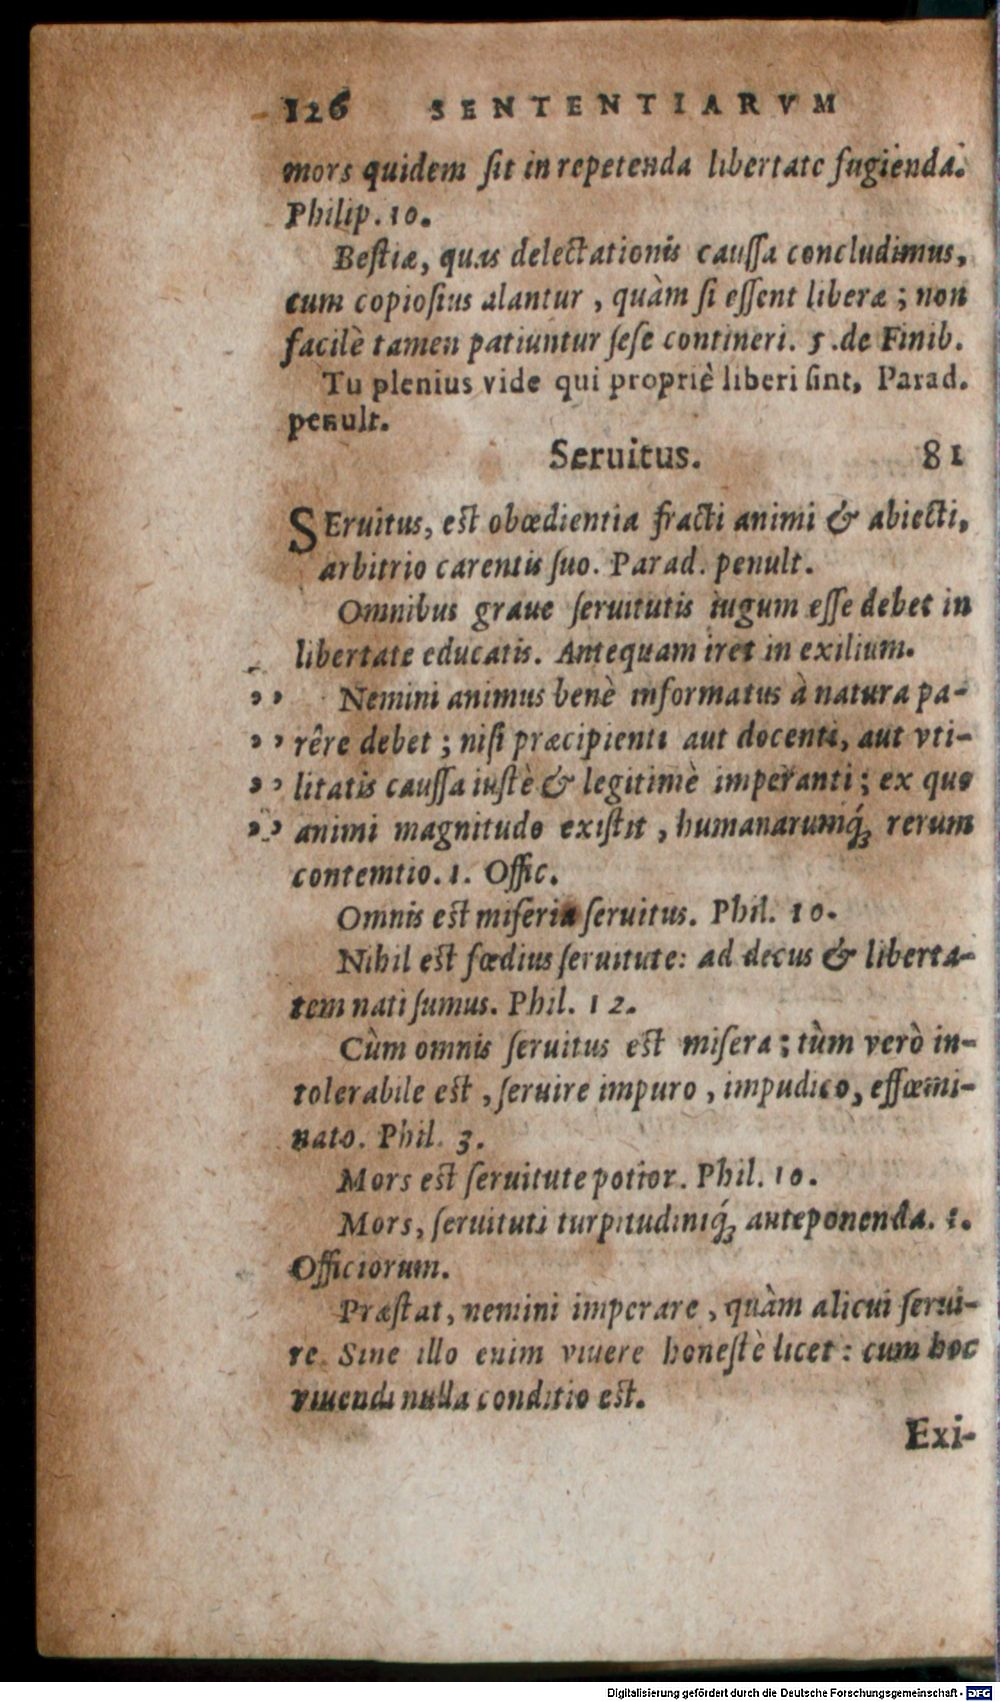 126 SENTENTIARVM
mors quidem ſit in repetenda libertate fugienda.
Philip. 10.
Beſtiæ, quas delectationis cauſſa concludimus,
cum copioſius alantur, quàm ſi eſſent liberæ; non
facilè tamen patiuntur ſeſe contineri. 5. de Finib.
Tu plenius vide qui propriè liberi ſint, Parad.
penult.
Seruitus. 81
SEruitus, eſt obœdientia fracti animi & abiecti,
arbitrio carentis ſuo. Parad. penult.
Omnibus graue ſeruitutis iugum eſſe debet in
libertate educatis. Antequam iret in exilium.
,, Nemini animus benè informatus à natura pa-
,, rêre debet; niſi præcipienti aut docenti, aut vti-
,, litatis cauſſa iuſtè & legitimè imperanti; ex quo
,, animi magnitudo exiſtit, humanarumq́; rerum
contemtio. 1. Offic.
Omnis eſt miſeria ſeruitus. Phil. 10.
Nihil eſt fœdius ſeruitute: ad decus & liberta-
tem nati ſumus. Phil. 12.
Cùm omnis ſeruitus eſt miſera; tùm verò in-
tolerabile eſt, ſeruire impuro, impudico, effœmi-
nato. Phil. 3.
Mors eſt ſeruitute potior. Phil. 10.
Mors, ſeruituti turpitudiniq́; anteponenda. 1.
Officiorum.
Præſtat, nemini imperare, quàm alicui ſerui-
re. Sine illo enim viuere honeſtè licet: cum hoc
viuendi nulla conditio eſt.
Exi-
Digitalisierung gefördert durch die Deutsche Forschungsgemeinschaft - DFG